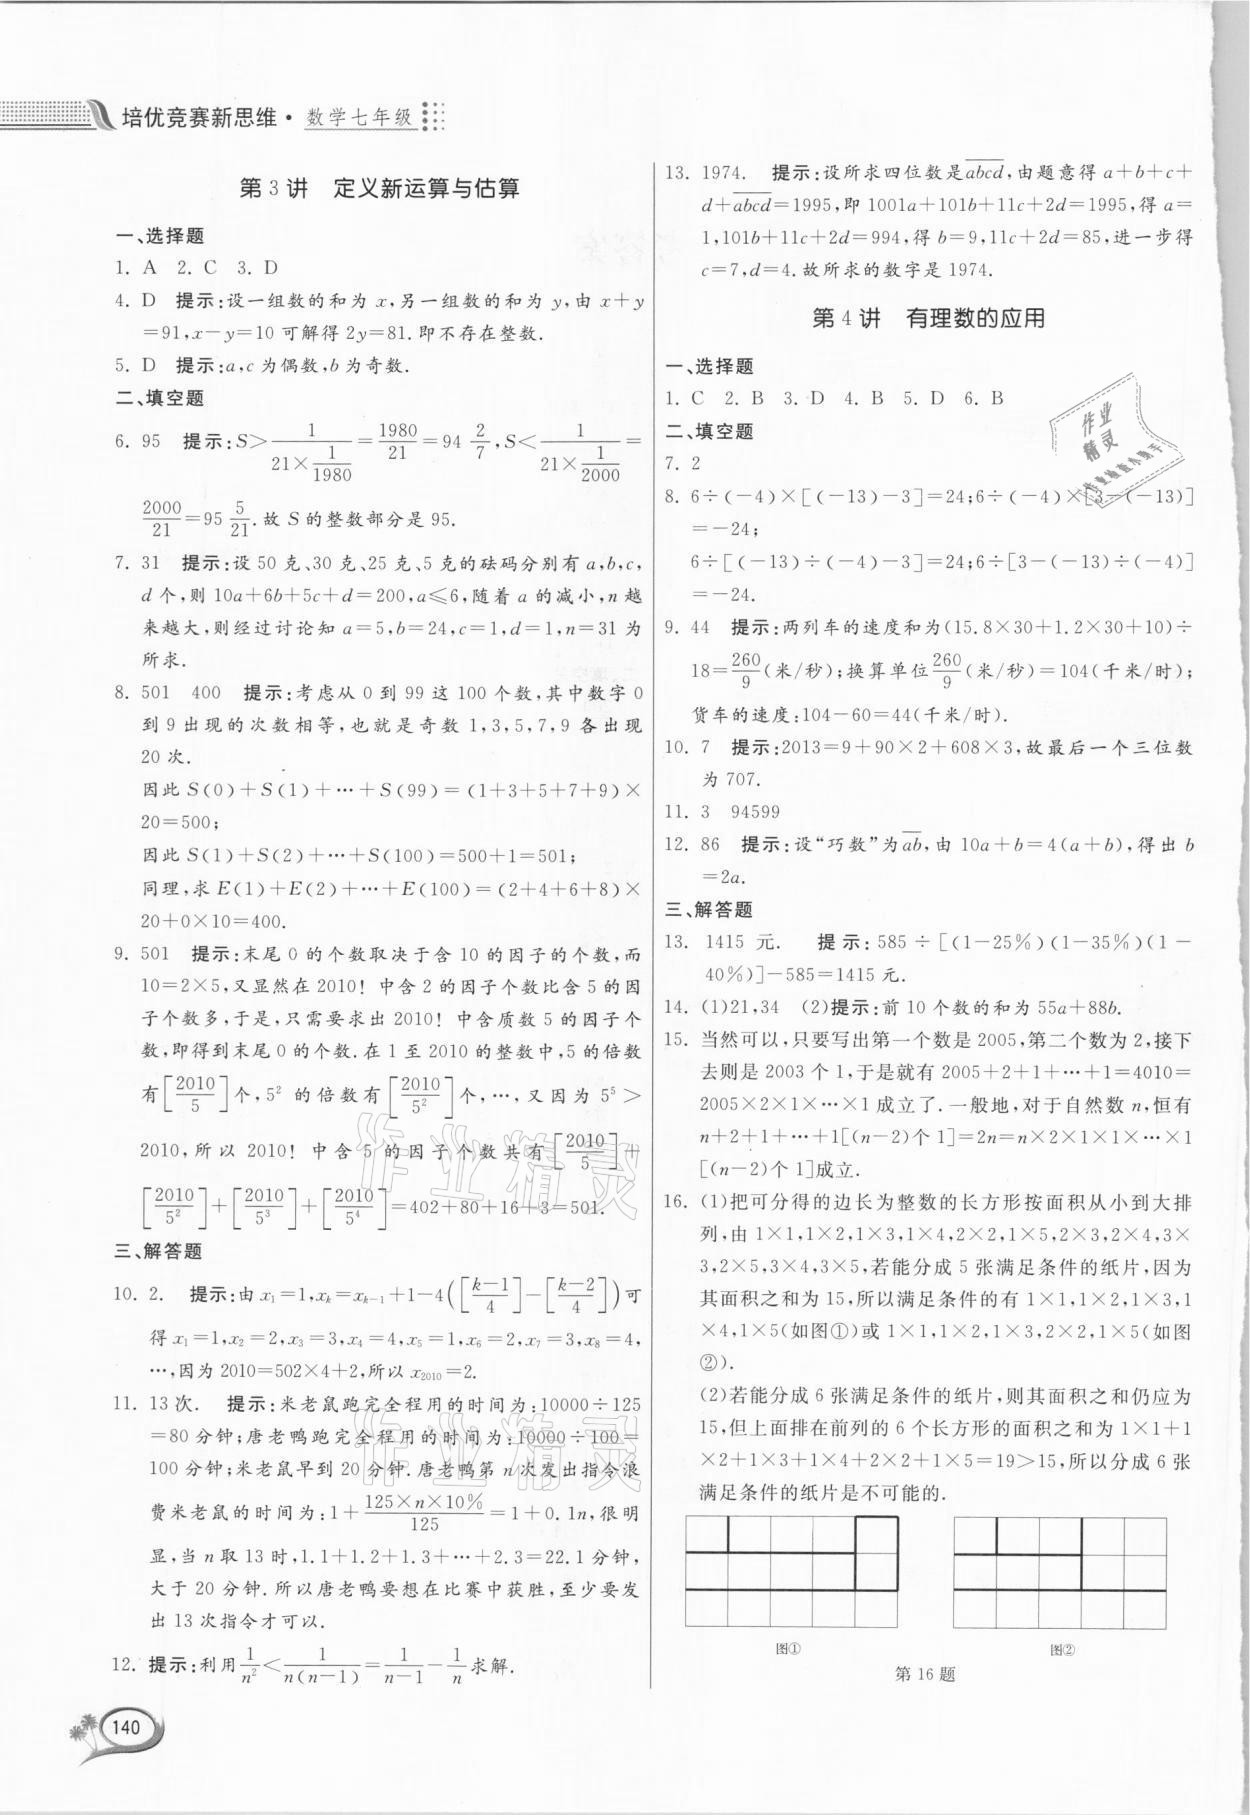 培优竞赛新思维·数学七年级
第3讲 定义新运算与估算
一、选择题
1. A 2. C 3. D
4. D 提示:设一组数的和为 x,另一组数的和为 y,由 x+y
=91,x-y=10 可解得 2y=81.即不存在整数.
5. D 提示:a,c 为偶数,b 为奇数.
二、填空题
6. 95 提示:S>1/(21×1/1980)=1980/21=94 2/7,S<1/(21×1/2000)=
2000/21=95 5/21.故 S 的整数部分是 95.
7. 31 提示:设 50 克、30 克、25 克、5 克的砝码分别有 a,b,c,
d 个,则 10a+6b+5c+d=200,a≤6,随着 a 的减小,n 越
来越大,则经过讨论知 a=5,b=24,c=1,d=1,n=31 为
所求.
8. 501 400 提示:考虑从 0 到 99 这 100 个数,其中数字 0
到 9 出现的次数相等,也就是奇数 1,3,5,7,9 各出现
20 次.
因此 S(0)+S(1)+…+S(99)=(1+3+5+7+9)×
20=500;
因此 S(1)+S(2)+…+S(100)=500+1=501;
同理,求 E(1)+E(2)+…+E(100)=(2+4+6+8)×
20+0×10=400.
9. 501 提示:末尾 0 的个数取决于含 10 的因子的个数,而
10=2×5,又显然在 2010! 中含 2 的因子个数比含 5 的因
子个数多,于是,只需要求出 2010! 中含质数 5 的因子个
数,即得到末尾 0 的个数.在 1 至 2010 的整数中,5 的倍数
有[2010/5]个,5² 的倍数有[2010/5²]个,…,又因为 5⁵>
2010,所以 2010! 中含 5 的因子个数共有[2010/5]+
[2010/5²]+[2010/5³]+[2010/5⁴]=402+80+16+3=501.
三、解答题
10. 2. 提示:由 x₁=1,xₖ=xₖ₋₁+1-4([(k-1)/4]-[(k-2)/4])可
得 x₁=1,x₂=2,x₃=3,x₄=4,x₅=1,x₆=2,x₇=3,x₈=4,
…,因为 2010=502×4+2,所以 x₂₀₁₀=2.
11. 13 次. 提示:米老鼠跑完全程用的时间为:10000÷125
=80 分钟;唐老鸭跑完全程用的时间为:10000÷100=
100 分钟;米老鼠早到 20 分钟.唐老鸭第 n 次发出指令浪
费米老鼠的时间为:1+(125×n×10%)/125=1+0.1n,很明
显,当 n 取 13 时,1.1+1.2+1.3+…+2.3=22.1 分钟,
大于 20 分钟.所以唐老鸭要想在比赛中获胜,至少要发
出 13 次指令才可以.
12. 提示:利用 1/n²<1/(n(n-1))=1/(n-1)-1/n求解.
140
13. 1974. 提示:设所求四位数是a̅b̅c̅d̅,由题意得 a+b+c+
d+a̅b̅c̅d̅=1995,即 1001a+101b+11c+2d=1995,得 a=
1,101b+11c+2d=994,得 b=9,11c+2d=85,进一步得
c=7,d=4.故所求的数字是 1974.
第4讲 有理数的应用
一、选择题
1. C 2. B 3. D 4. B 5. D 6. B
二、填空题
7. 2
8. 6÷(-4)×[(-13)-3]=24;6÷(-4)×[3-(-13)]
=-24;
6÷[(-13)÷(-4)-3]=24;6÷[3-(-13)÷(-4)]
=-24.
9. 44 提示:两列车的速度和为(15.8×30+1.2×30+10)÷
18=260/9(米/秒);换算单位260/9(米/秒)=104(千米/时);
货车的速度:104-60=44(千米/时).
10. 7 提示:2013=9+90×2+608×3,故最后一个三位数
为 707.
11. 3 94599
12. 86 提示:设“巧数”为a̅b̅,由 10a+b=4(a+b),得出 b
=2a.
三、解答题
13. 1415 元. 提示:585÷[(1-25%)(1-35%)(1-
40%)]-585=1415 元.
14. (1)21,34 (2)提示:前 10 个数的和为 55a+88b.
15. 当然可以,只要写出第一个数是 2005,第二个数为 2,接下
去则是 2003 个 1,于是就有 2005+2+1+…+1=4010=
2005×2×1×…×1 成立了.一般地,对于自然数 n,恒有
n+2+1+…+1[(n-2)个 1]=2n=n×2×1×1×…×1
[(n-2)个 1]成立.
16. (1)把可分得的边长为整数的长方形按面积从小到大排
列,由 1×1,1×2,1×3,1×4,2×2,1×5,2×3,2×4,3×
3,2×5,3×4,3×5,若能分成 5 张满足条件的纸片,因为
其面积之和为 15,所以满足条件的有 1×1,1×2,1×3,1
×4,1×5(如图①)或 1×1,1×2,1×3,2×2,1×5(如图
②).
(2)若能分成 6 张满足条件的纸片,则其面积之和仍应为
15,但上面排在前列的 6 个长方形的面积之和为 1×1+1
×2+1×3+1×4+2×2+1×5=19>15,所以分成 6 张
满足条件的纸片是不可能的.
图① 图②
第 16 题
作业精灵
作业精灵
作业
精灵